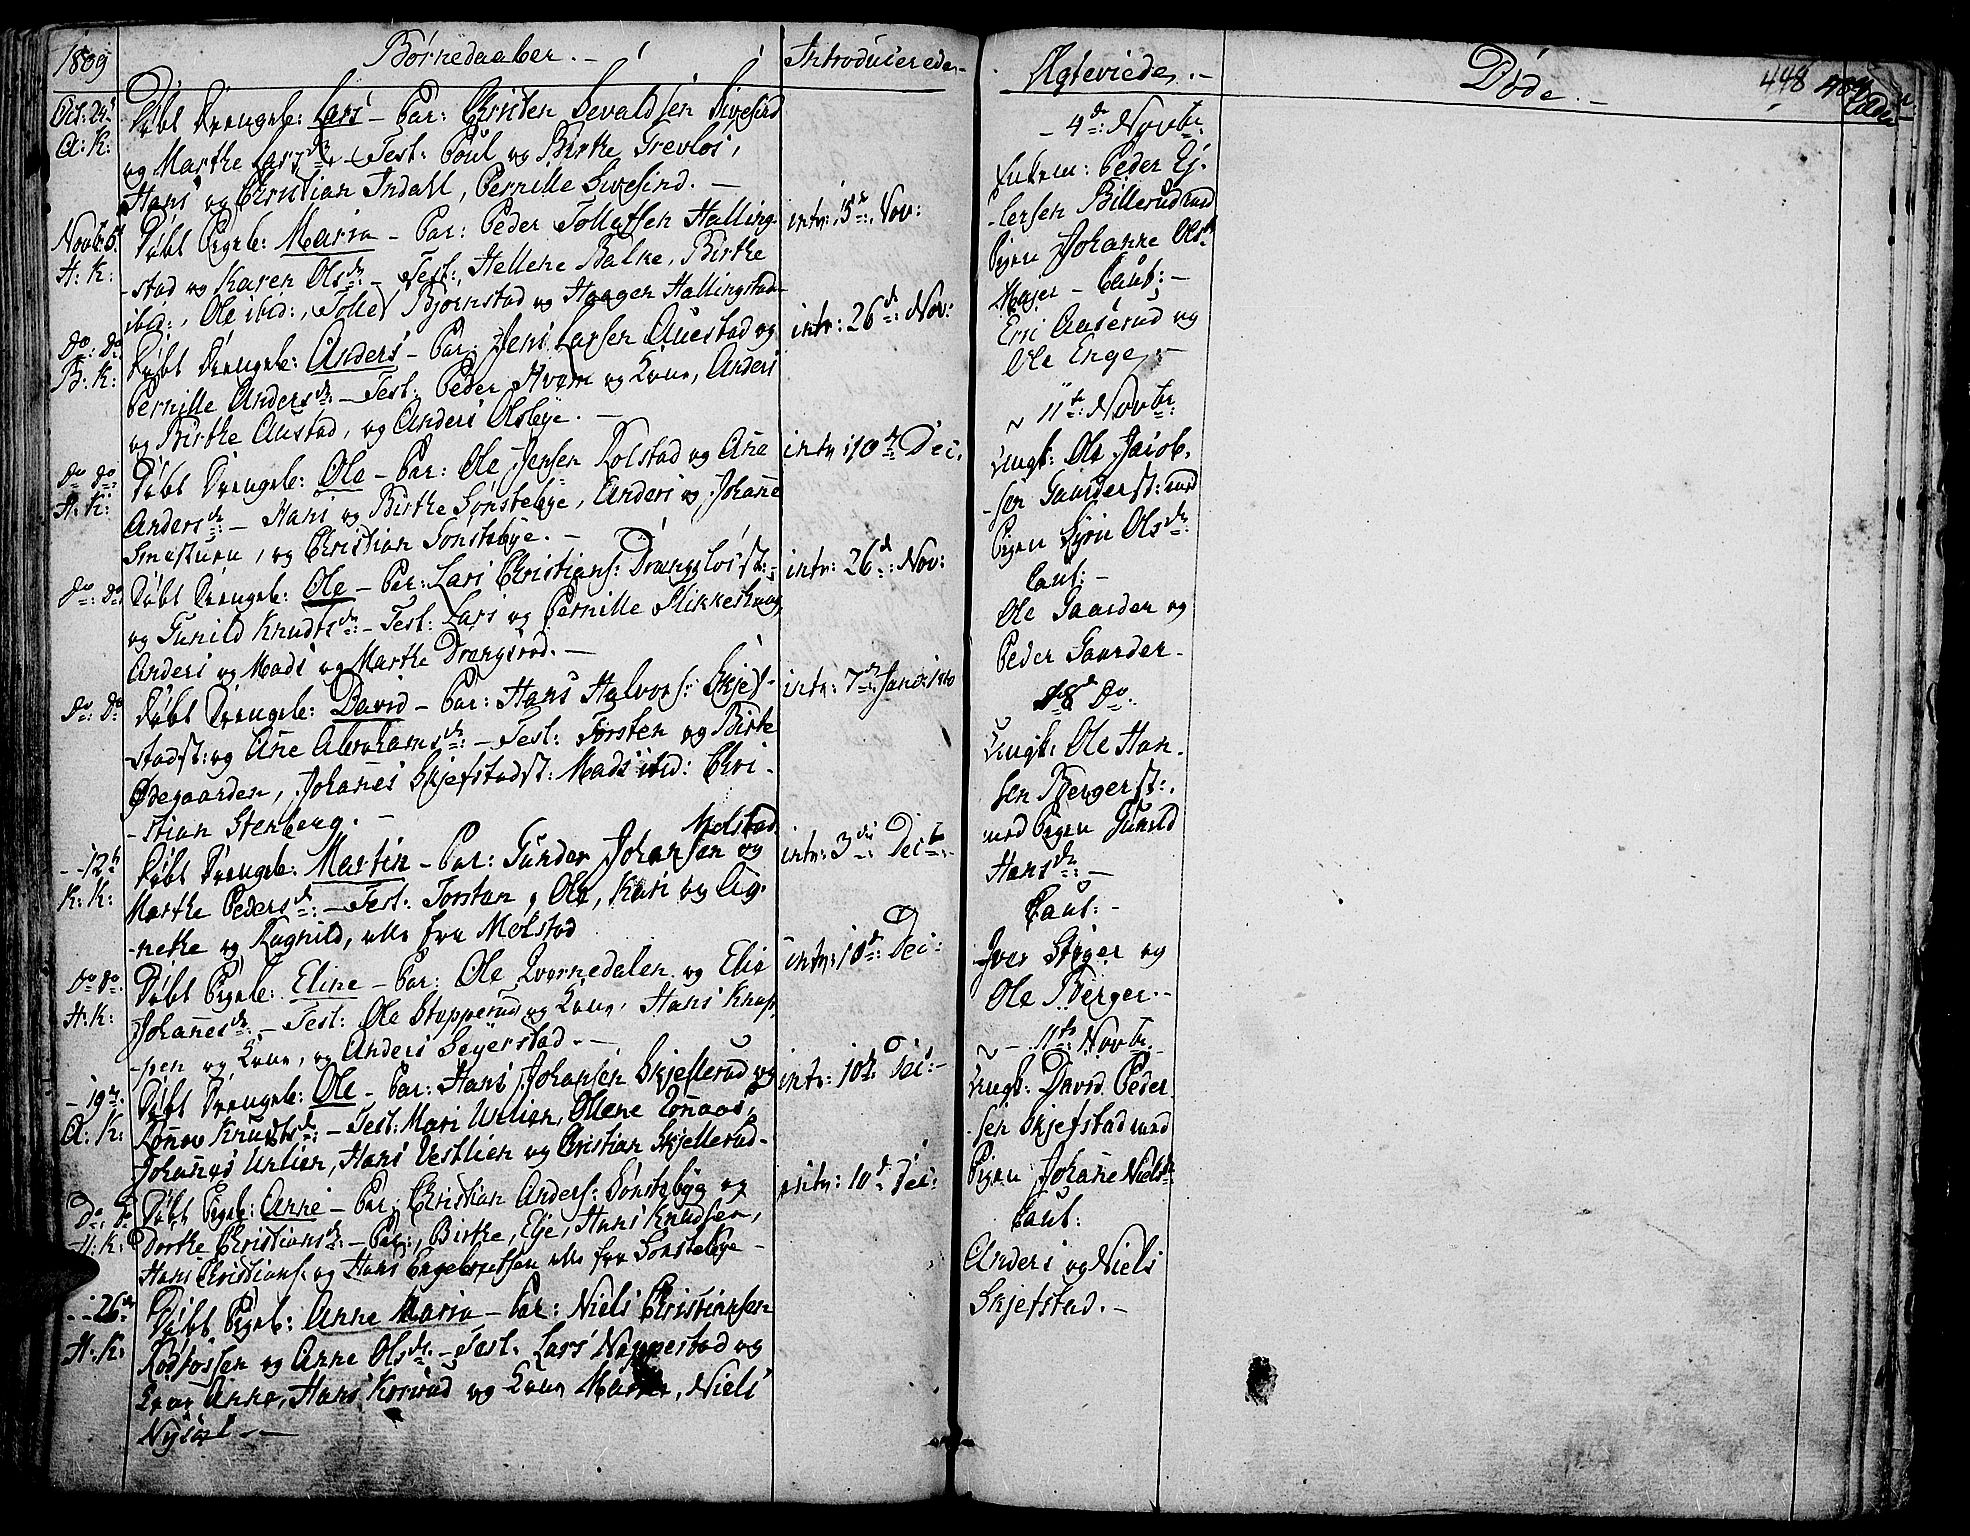 1809
Börnedaaber. -
Introducerede. -
Oct: 29
A: K:
Döbt Drengeb: Lars - Par: Christen Sevaldsen Sivesind
og Marthe Larsdr - Test: Poul og Birthe Trevlos,
Hans og Christian Indall, Pernille Sivesind. -
Novbr 5
H: K:
Döbt Pigeb: Maria - Par: Peder Tollefsen Halling-
-stad og Karen Olsdr: - Test: Hellene Balke, Birthe
ibid:, Ole ibid:, Tollef Bjørnstad og Haagen Hallingstad
intr: 15de Nov:
do: do
B: K:
Döbt Drengeb: Anders - Par: Jens Larsen Auestad og
Pernille Andersdr: - Test: Peder Hvem og Kone, Anders
og Birthe Austad, og Anders Olsbye. -
intr: 26de: Nov:
do do
H: K:
Döbt Drengeb: Ole - Par: Ole Jensen Kolstad og Ane
Andersdr: - Hans og Birthe Sønstebye, Anders og Johane
Smestuen, og Christian Sønstebye. -
intr: 10de Dec.
do: do
Döbt Drengeb: Ole - Par: Lars Christians: Drængsløst:
og Gunild Knudtsdr: - Test: Lars og Pernille Slikkeshaug
Anders og Mads og Marthe Drengsrød. -
intr: 26de: Nov:
do: do
Döbt Drengeb: David - Par: Hans Halvors: Skjef-
stadst: og Ane Abrahamsdr: - Test: Torsten og Birte
Ødegaarden, Johanes Skjefstadst: Mads ibid: Chri-
-stian Stenberg. -
intr: 7de Jan: 1810
- 12te
K: K:
Molstad
Döbt Drengeb: Martin - Par: Gunder Johansen og
Marthe Pedersdr: - Test: Torstan, Ole, Kari og Ag-
-nethe og Ragnild, alle fra Molstad
intr: 3die Decbr: -
do do
H: K:
Döbt Pigeb: Eline - Par: Ole Qvernedalen og Elie
Johanesdr: - Test: Ole Stopperud og Kone, Hans Knap-
-pen og Kone, og Anders Seyerstad. -
intr: 10de: Dec:
- 19de
A: K:
Döbt Drengeb: Ole - Par: Hans Johansen Skjellerud og
Rönov Knudtsdr: - Test: Mari Urlien, Ollene Rönaas,
Johanes Urlien, Hans Vestlien og Christian Skjellerud -
intr: 10de Dec: -
Do: do
H: K:
Döbt Pigeb: Anne - Par: Christian Anders: Sønstebyg og
Dorthe Christiansdr: - Par:, Birthe, Elje, Hans Knudsen,
Hans Christians: og Hans Engebretsen alle fra Sønstebye -
intr: 10de Dec:
- 26de
H: K:
Döbt Pigeb: Anne Maria - Par: Niels Christiansen
Rødfossen og Anne Olsdr - Test: Lars Nøppestad og
Kone Anne, Hans Korsrud og Kone Marthe, Niels
Nysæt. -
Ægteviede. -
- 4de: Novbr:
Enkem: Peder Ej-
-lersen Billerud med
Pigen Johanne Olsdr
Majer - Caut: -
Eric Aaserud og
Ole Enge. -
~ 11te: Novbr
Ungk: Ole Jacob-
-sen Gaarderst: med
Pigen Syrie Olsdr:
Caut: -
Ole Gaarder og
Peder Gaarder -
18de do.
Ungk: Ole Han-
sen Bergerst:
med Pigen Gunild
Hansdr: -
Caut: -
Iver Støger og
Ole Berger. -
~ - 11te: Novbr
Ungk: David Peder-
-sen Skjefstad med
Pigen Johane Nielsdr
Caut:
Anders og Niels
Skjefstad. -
Døde. -
448